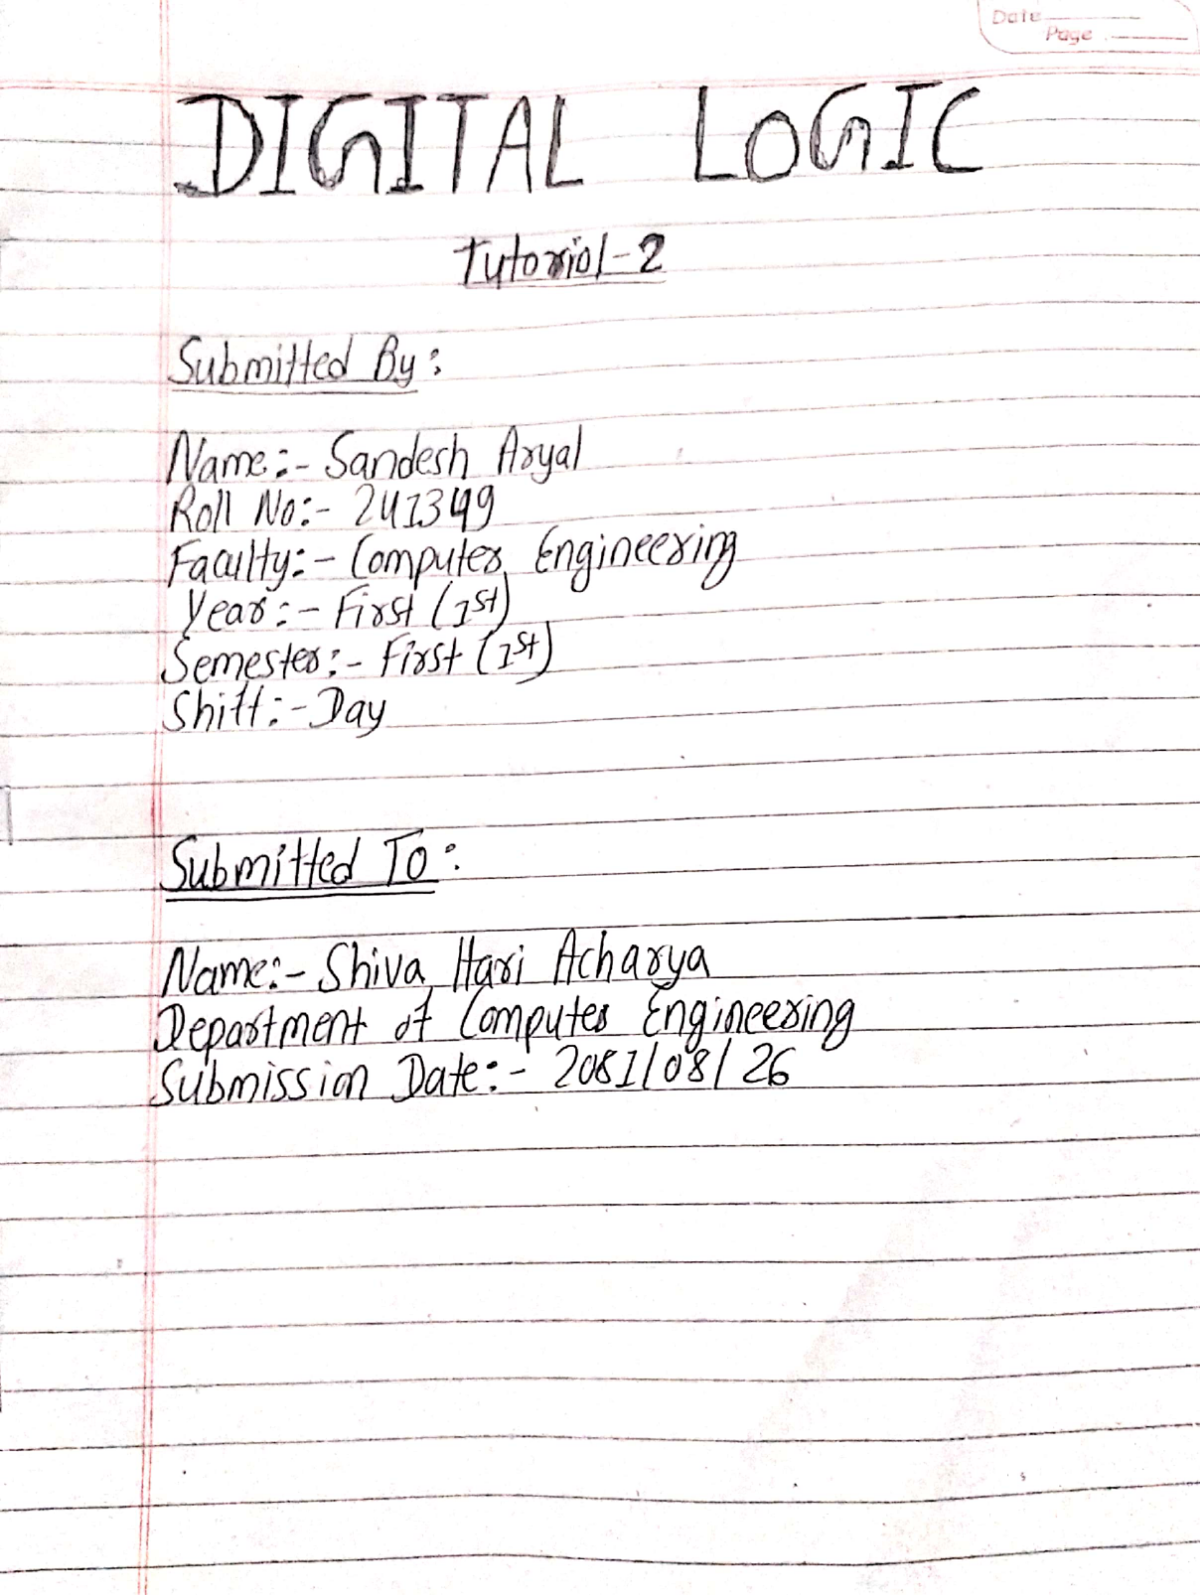 Date
Page
DIGITAL LOGIC
Tutorial-2
Submitted By:
Name:- Sandesh Aryal
Roll No:- 241349
Faculty:- Computer Engineering
Year:- First (1st)
Semester:- First (1st)
Shift:- Day
Submitted To:
Name:- Shiva Hari Acharya
Department of Computer Engineering
Submission Date:- 2081/08/26